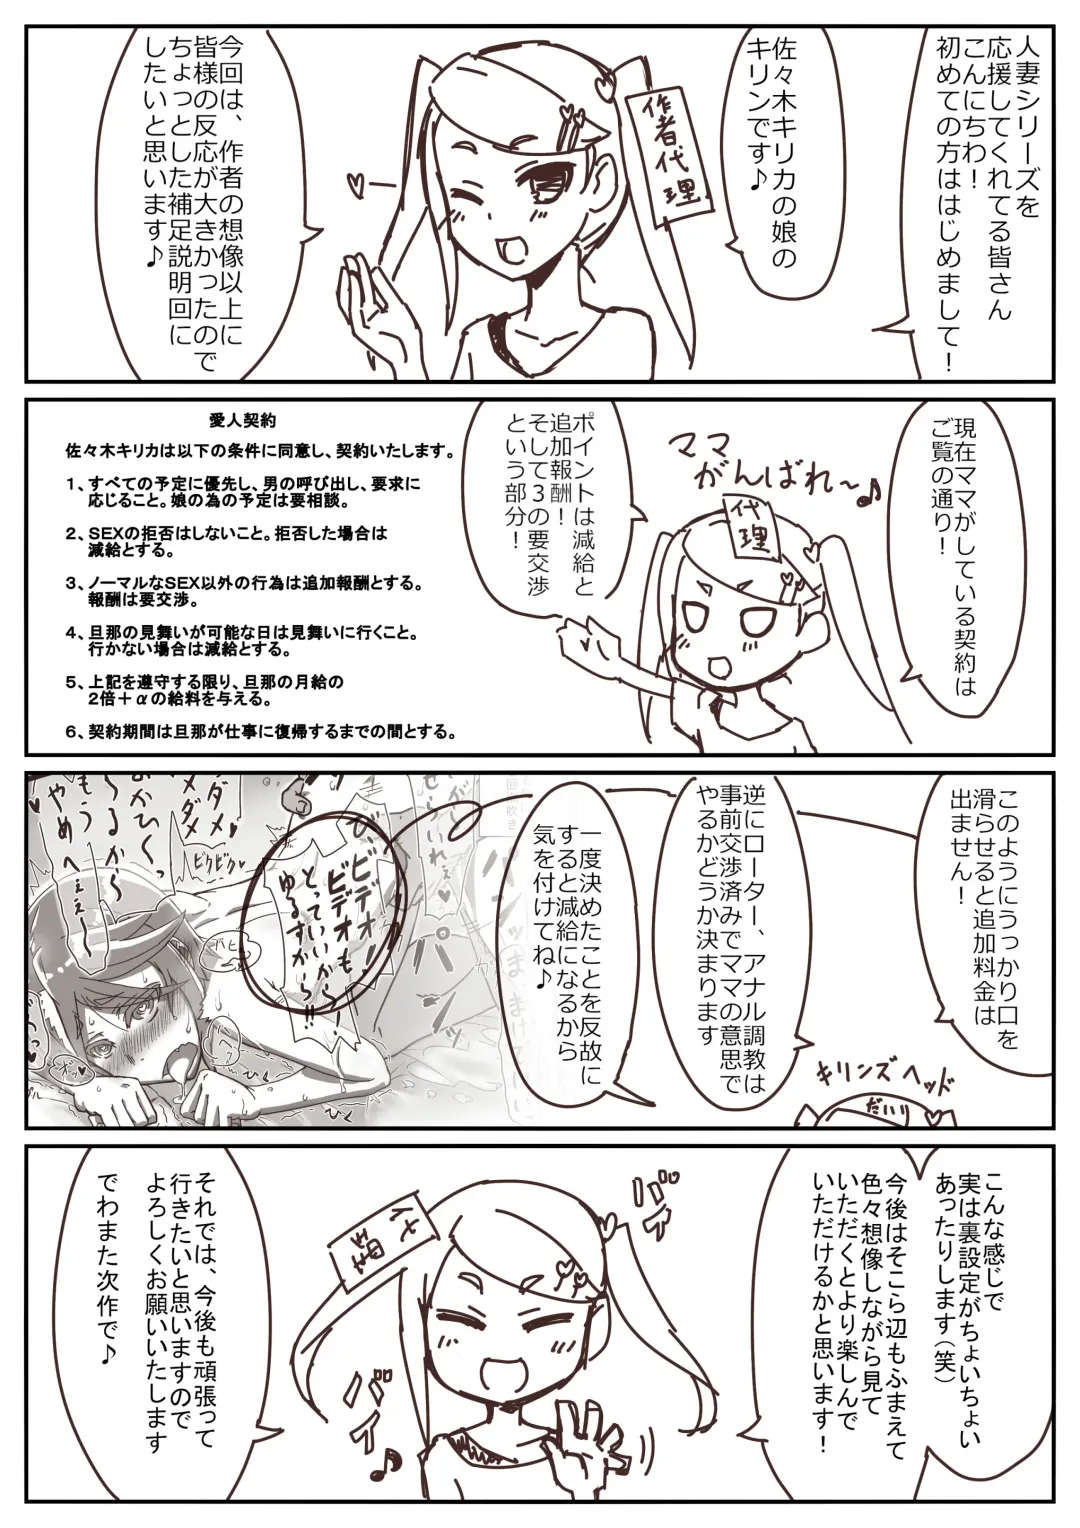 人妻シリーズを
応援してくれてる皆さん
こんにちわ！
初めての方ははじめまして！
佐々木キリカの娘の
キリンです♪
作者代理
今回は、作者の想像以上に
皆様の反応が大きかったので
ちょっとした補足説明回に
したいと思います♪
現在ママがしている契約は
ご覧の通り！
ママ
がんばれ〜♪
代理
ポイントは減給と
追加報酬！
そして３の要交渉
という部分！
愛人契約
佐々木キリカは以下の条件に同意し、契約いたします。
１、すべての予定に優先し、男の呼び出し、要求に
応じること。娘の為の予定は要相談。
２、ＳＥＸの拒否はしないこと。拒否した場合は
減給とする。
３、ノーマルなＳＥＸ以外の行為は追加報酬とする。
報酬は要交渉。
４、旦那の見舞いが可能な日は見舞いに行くこと。
行かない場合は減給とする。
５、上記を遵守する限り、旦那の月給の
２倍＋αの給料を与える。
６、契約期間は旦那が仕事に復帰するまでの間とする。
このようにうっかり口を
滑らせると追加料金は
出ません！
逆にローター、アナル調教は
事前交渉済みでママの意思で
やるかどうか決まります
一度決めたことを反故に
すると減給になるから
気を付けてね♪
キリンズヘッド
だいり
ビデオ！
ビデオも、
とっていいから〜
ゆるすから〜！！
ダメダメ
ビクビク♥
もうやめへぇぇ〜
パ
ひく
こんな感じで
実は裏設定がちょいちょい
あったりします（笑）
今後はそこら辺もふまえて
色々想像しながら見て
いただくとより楽しんで
いただけるかと思います！
バァ
バイ♪
それでは、今後も頑張って
行きたいと思いますので
よろしくお願いいたします
でわまた次作で♪